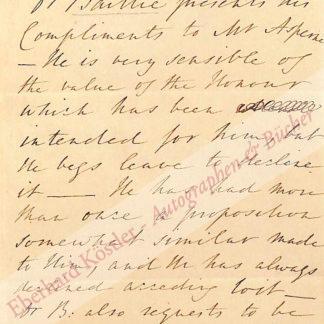 Dr Baillie presents his
Compliments to Mr Asperne
— He is very sensible of
the value of the Honour
which has been
intended for him, but
He begs leave to decline
it — He has had more
than once a proposition
somewhat similar made
to Him, and He has always
declined acceding to it —
Dr B: also requests to be
Eberhard Köstler - Autographen & Bücher